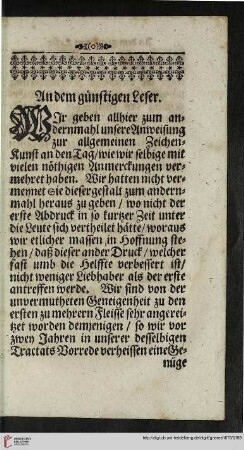 An dem günstigen Leser.
WIr geben allhier zum an-
dernmahl unsere Anweisung
zur allgemeinen Zeichen-
Kunst an den Tag / wie wir selbige mit
vielen nöthigen Anmerckungen ver-
mehret haben. Wir hatten nicht ver-
meynet Sie dieser gestalt zum andern-
mahl heraus zu geben / wo nicht der
erste Abdruck in so kurtzer Zeit unter
die Leute sich vertheilet hätte / woraus
wir etlicher massen in Hoffnung ste-
hen / daß dieser ander Druck / welcher
fast umb die Helffte verbessert ist /
nicht weniger Liebhaber als der erste
antreffen werde. Wir sind von der
unvermutheten Geneigenheit zu den
ersten zu mehrern Fleisse sehr angerei-
tzet worden demjenigen / so wir vor
zwey Jahren in unserer desselbigen
Tractats Vorrede verheissen eine Ge-
nüge